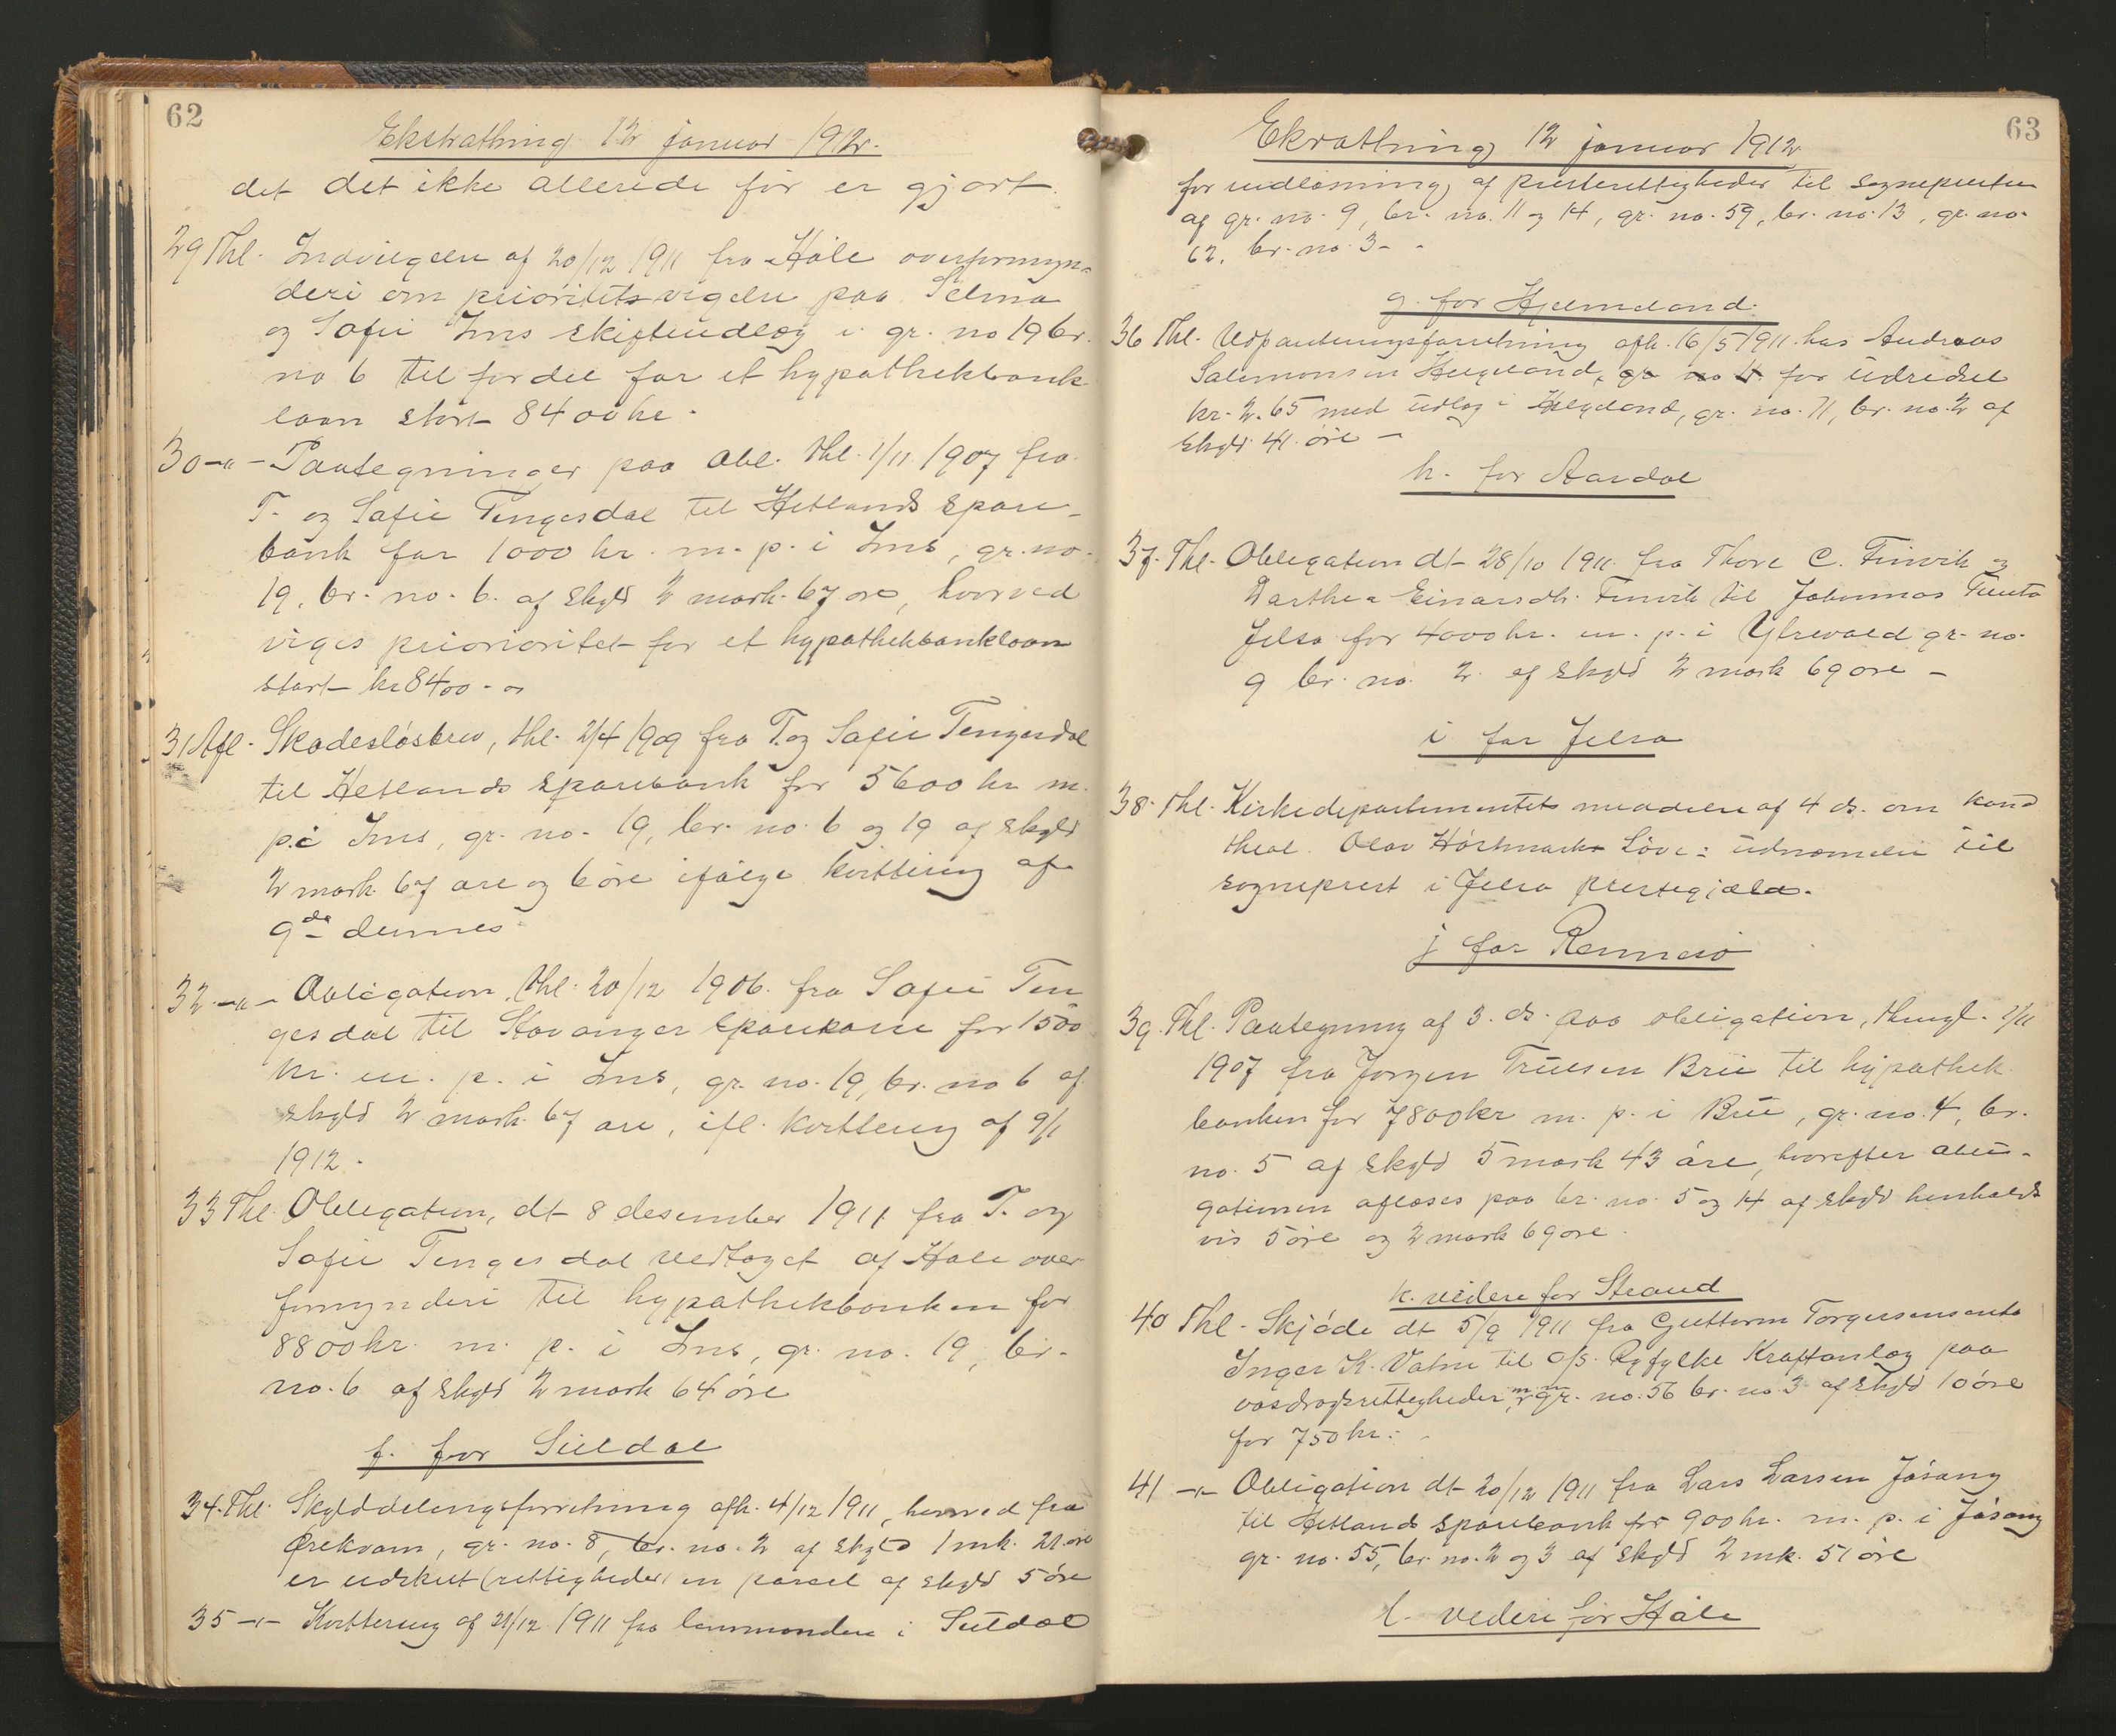 62
Ekstrathing 12 januar 1912.
det det ikke allerede før er gjort.
29 Thl. Indvilgelse af 20/12 1911 fra Håle overformyn-
deri om prioritetsvigelse paa Selma
og Sofie Ims skifteudlæg i gr. no 19 br.
no 6 til fordel for et hypothekbank
laan stort 8400 kr.
30 -"- Paategninger paa obl. thl. 1/11 1907 fra
T. og Sofie Tengesdal til Hetlands spare-
bank for 1000 kr. m. p. i Ims, gr. no.
19, br. no. 6. af skyld 2 mark 67 øre, hvorved
viges priorioritet for et hypothekbanklaan
stort kr 8400 - "
31 Afl. Skadesløsbrev, thl. 2/4 1909 fra T. og Sofie Tengesdal
til Hetlands sparebank for 5600 kr m.
p. i Ims, gr. no. 19, br. no. 6 og 19 af skyld
2 mark 67 øre og 6 øre ifølge kvittering af
9de dennes
32 -"- Obligation, thl. 20/12 1906 fra Sofie Ten
gesdal til Stavanger sparekasse for 1500
kr. m. p. i Ims, gr. no. 19, br. no 6 af
skyld 2 mark 67 øre, ifl. kvittering af 9/1
1912.
33 Thl. Obligation, dt 8 desember 1911 fra T. og
Sofie Tengesdal vedtaget af Håle over
formynderi til hypothekbanken for
8800 kr. m. p. i Ims, gr. no. 19, br.
no. 6 af skyld 2 mark 64 øre
f. for Suldal
34. Thl. Skylddelingsforretning afh. 4/12 1911, hvorved fra
Ørekvam, gr. no. 8, br. no. 2 af skyld 1 mk. 21 øre
er udskilt (rettigheder) en parsel af skyld 5 øre
35 -"- Kvittering af 21/12 1911 fra lensmanden i Suldal
63
Ekrathing 12 januar 1912
for indløsning af presterettigheder til sogneprsten
af gr. no. 9, br. no. 11 og 14, gr. no. 59, br. no. 13, gr. no.
62, br. no. 3 -
g. for Hjelmeland.
36 Thl. Udpantningsforretning afh. 16/5 1911 hos Andreas
Salemonsen Helgeland, gr no 4 for udredsel
kr. 2.65 med udlæg i Helgeland, gr. no. 71, br. no. 2 af
skyld 41 øre -
h. for Aardal
37. Thl. Obligation dt 28/10 1911 fra Thore C. Finvik og
Darthea Einarsdt. Finvik til Johannes
Jelsa for 4000 kr. m. p. i gr. no.
9 br. no. 2 af skyld 2 mark 69 øre -
i for Jelsa
38. Thl. Kirkedepartementets meddelelse af 4 ds. om kand
theol. Olav Løve: udnævnelse til
sogneprest i Jelsa prestegjæld.
j for Rennesø
39. Thl. Paategning af 3. ds. paa obligation, thingl. 2/11
1907 fra Jørgen Truesen Brü til hypothek
banken for 7800 kr m. p. i Brü, gr. no. 4, br.
no. 5 af skyld 5 mark 43 øre, hvorefter obli-
gationen afløses paa br. no. 5 og 14 af skyld henholds
vis 5 øre og 2 mark 69 øre.
k. videre for Strand
40 Thl. Skjøde dt 5/9 1911 fra Guttorm Torgersens enke
Inger K. Valne til A/S. Ryfylke Kraftanlæg paa
vasdragsrettigheder m m i gr. no. 56 br. no 3 af skyld 10 øre
for 750 kr.
41 -"- Obligation dt 20/12 1911 fra Lars Larsen Jøsang
til Hetlands sparebank for 900 kr. m. p. i Jøsang
gr. no. 55, br. no. 2 og 3 af skyld 2 mk. 51 øre
l. videre for Håle